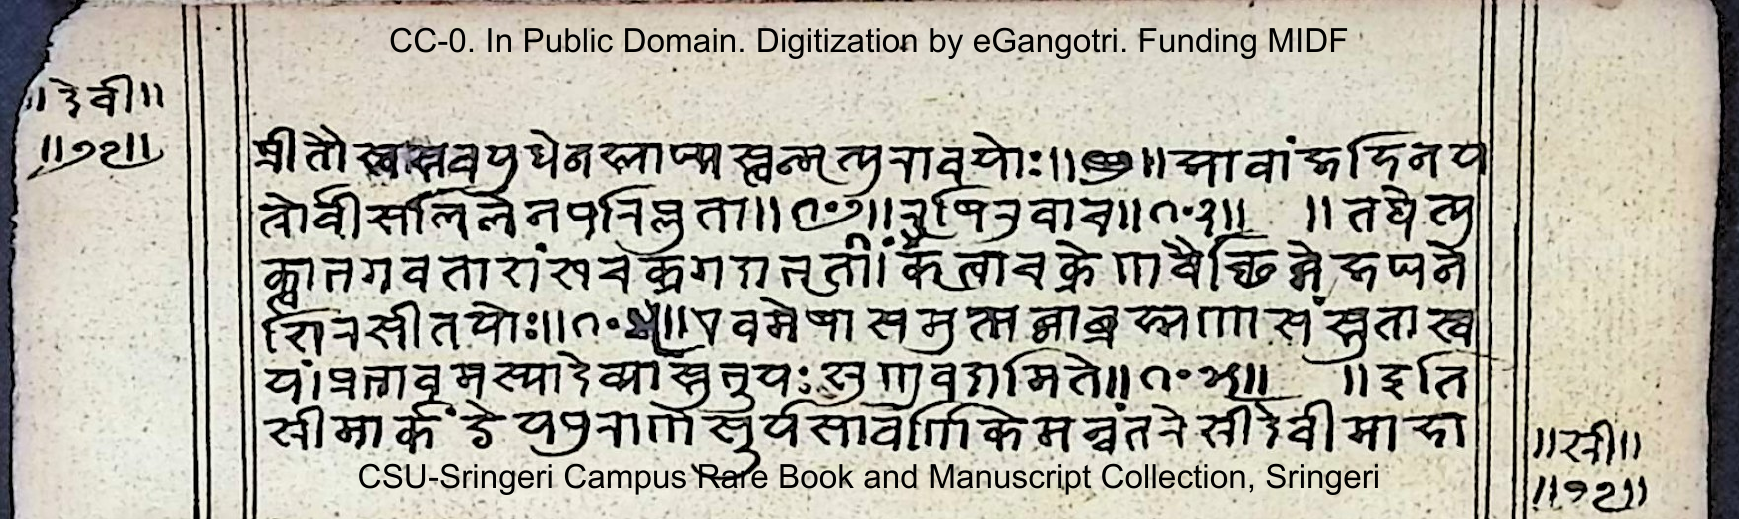 CC-0. In Public Domain. Digitization by eGangotri. Funding MIDF
॥देवी॥
॥१२॥
प्रीतौ स्वस्तवयुधेनस्लाप्यस्त्वन्मृत्युरावयोः॥ ॥आवांजहिनय
त्रोर्वीसलिलेनपरिप्लुता॥१०२॥ऋषिरुवाच॥१०३॥ ॥तथेत्यु
क्त्वाभगवताशंखचक्रगदाभृता।कृत्वाचक्रेणवैछिन्नेजघने
शिरसीतयोः॥१०४॥एवमेषासमुत्पन्नाब्रह्मणासंस्तुतास्व
यं।प्रभावमस्यादेव्यास्तुभुयःसृणुवदामिते॥१०५॥ ॥इति
स्रीमार्कंडेयपुराणेसुर्यसावर्णिकेमन्वंतरेस्रीदेवीमाहा
॥स्री॥
॥१२॥
CSU-Sringeri Campus Rare Book and Manuscript Collection, Sringeri